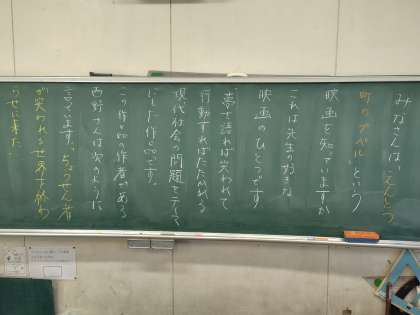 みなさんは、「えんとつ
町のプペル」という
映画を知っていますか
これは先生の好きな
映画のひとつです
夢を語れば笑われて
行動すればたたかれる
現代社会の問題をテーマ
にした作品です。
この作品の作者である
西野さんは次のように
言っています。ちょうせん者
が笑われる世界を終わ
らせに来た!